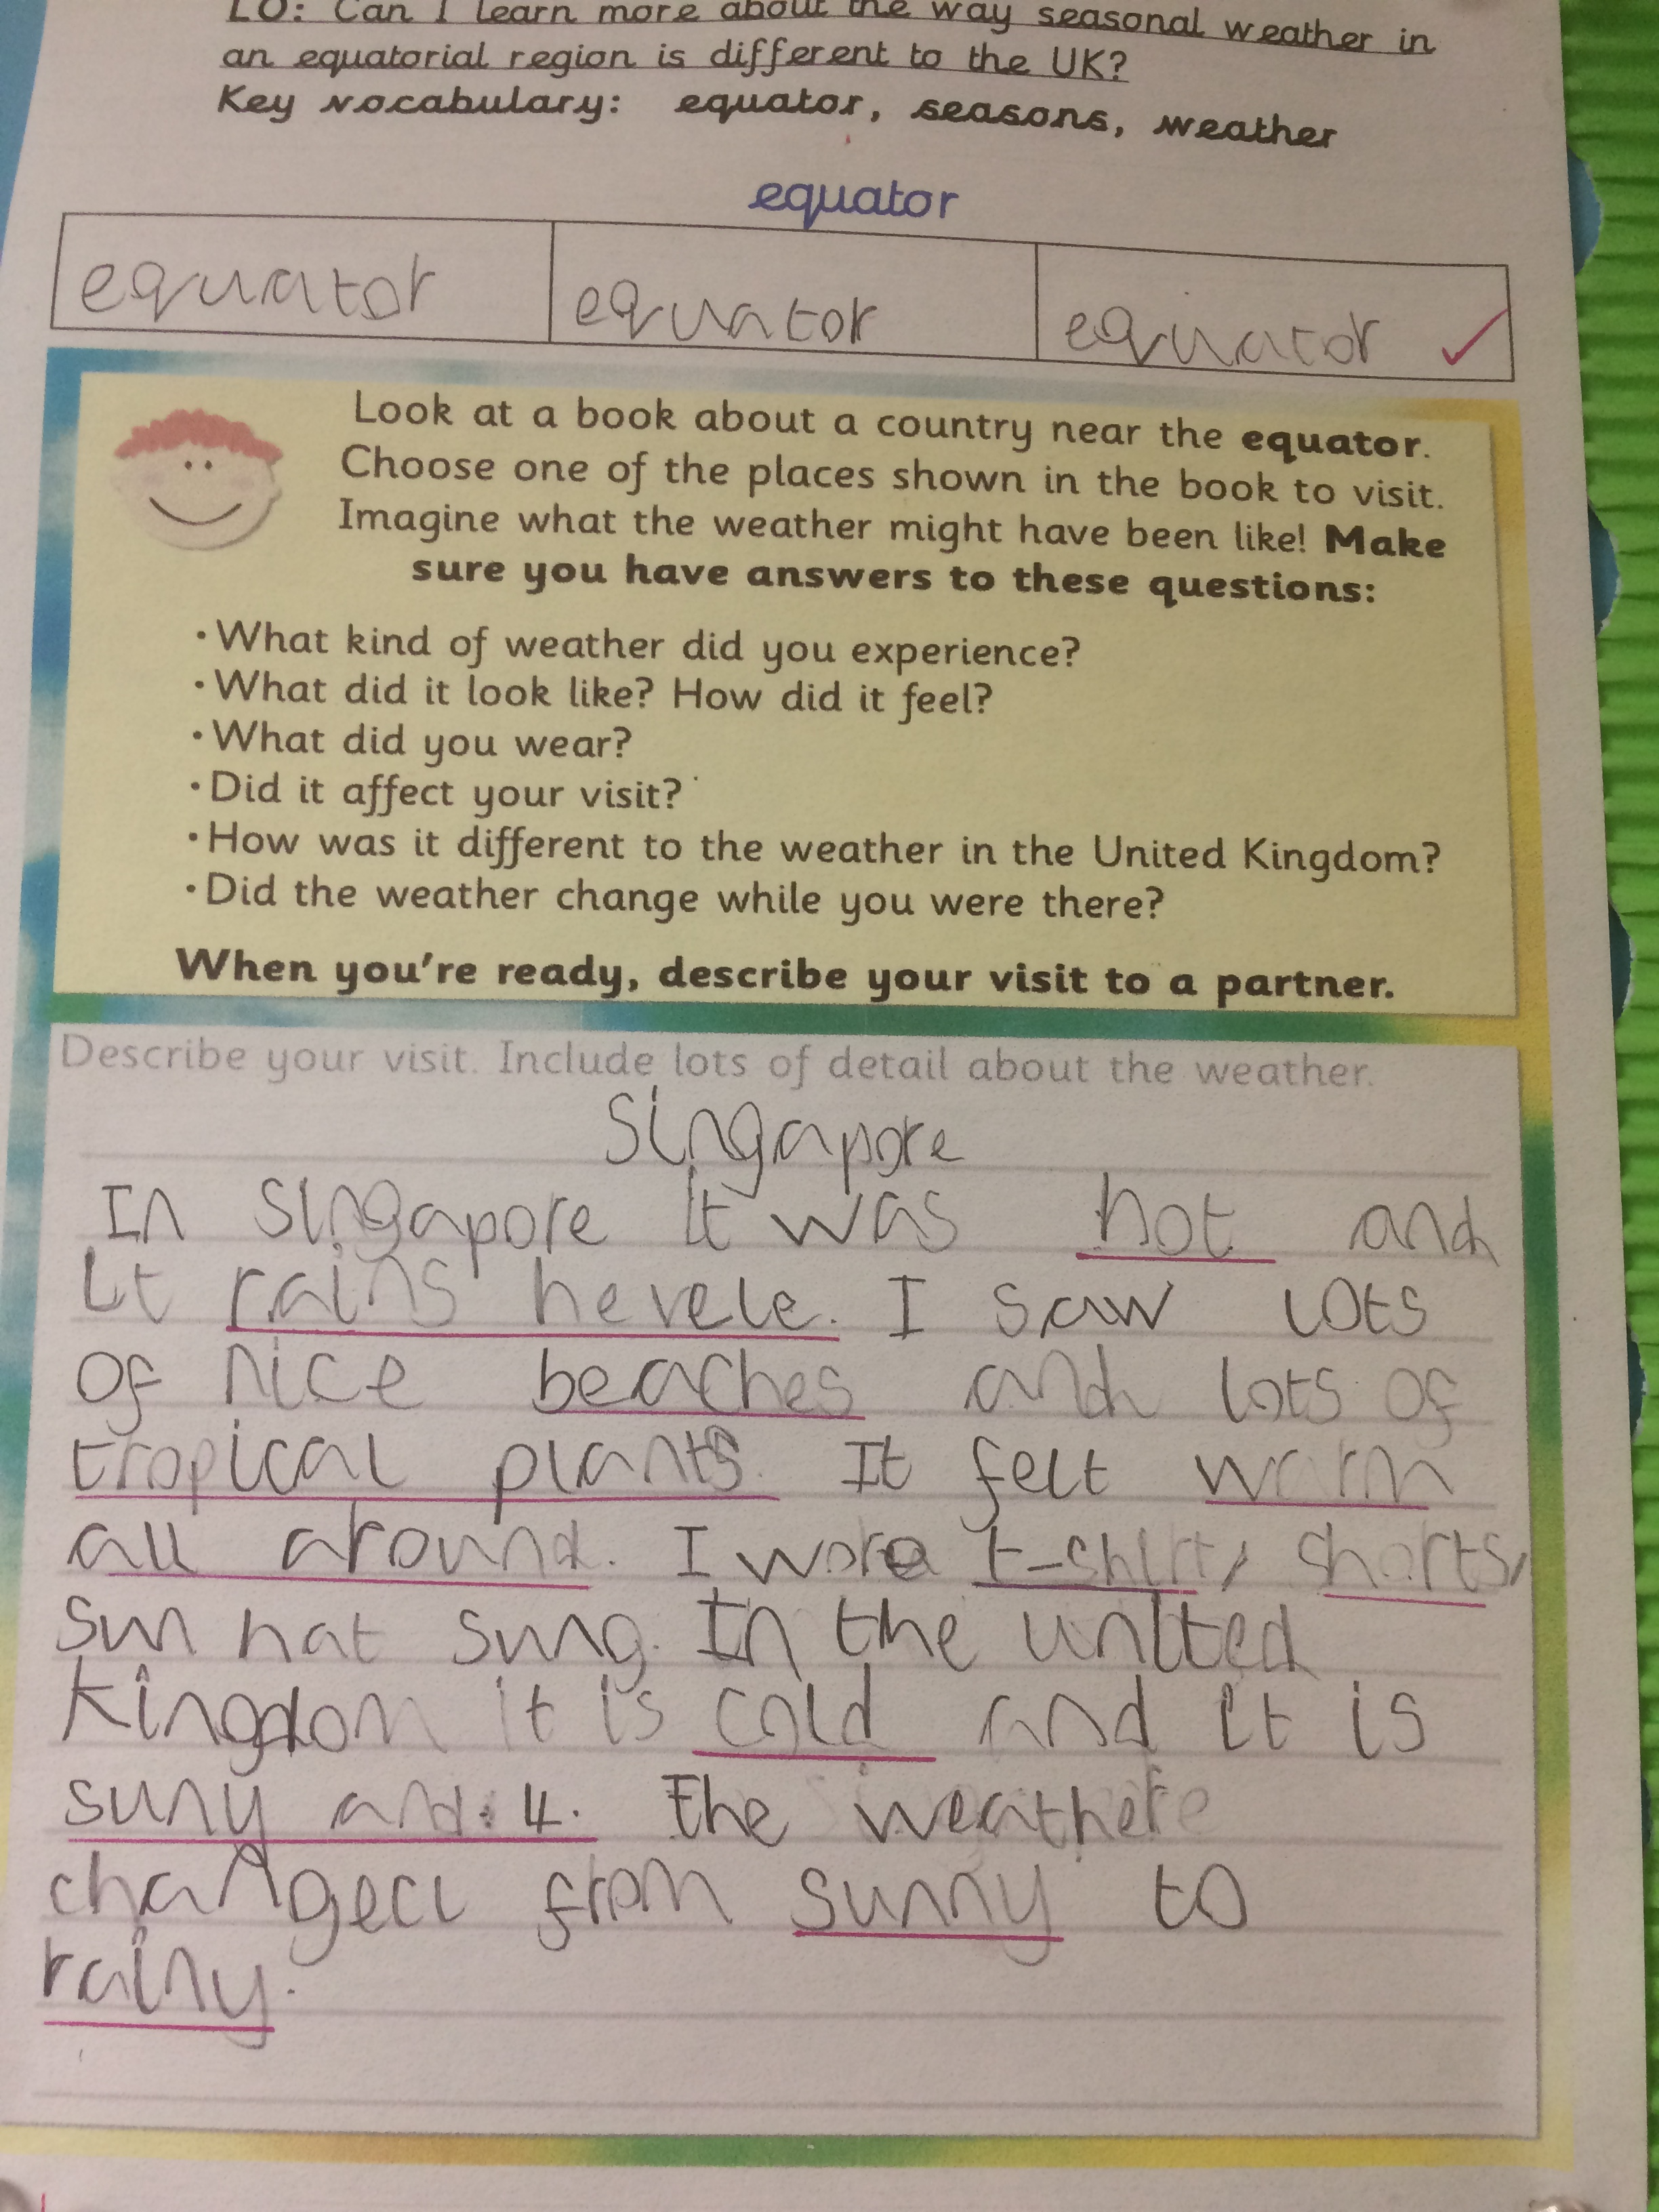 LO: Can I learn more about the way seasonal weather in
an equatorial region is different to the UK?
Key vocabulary: equator, seasons, weather
equator
equator equator equator ✓
Look at a book about a country near the equator.
Choose one of the places shown in the book to visit.
Imagine what the weather might have been like! Make
sure you have answers to these questions:
•What kind of weather did you experience?
•What did it look like? How did it feel?
•What did you wear?
•Did it affect your visit?
•How was it different to the weather in the United Kingdom?
•Did the weather change while you were there?
When you're ready, describe your visit to a partner.
Describe your visit. Include lots of detail about the weather.
Singapore
In Singapore it was hot and
it rains hevele. I saw lots
of nice beaches and lots of
tropical plants. It felt warm
all around. I wore t-shirt, shorts,
sun hat sung. In the united
kingdom it is cold and it is
suny and 4. The weather
changed from sunny to
rainy.